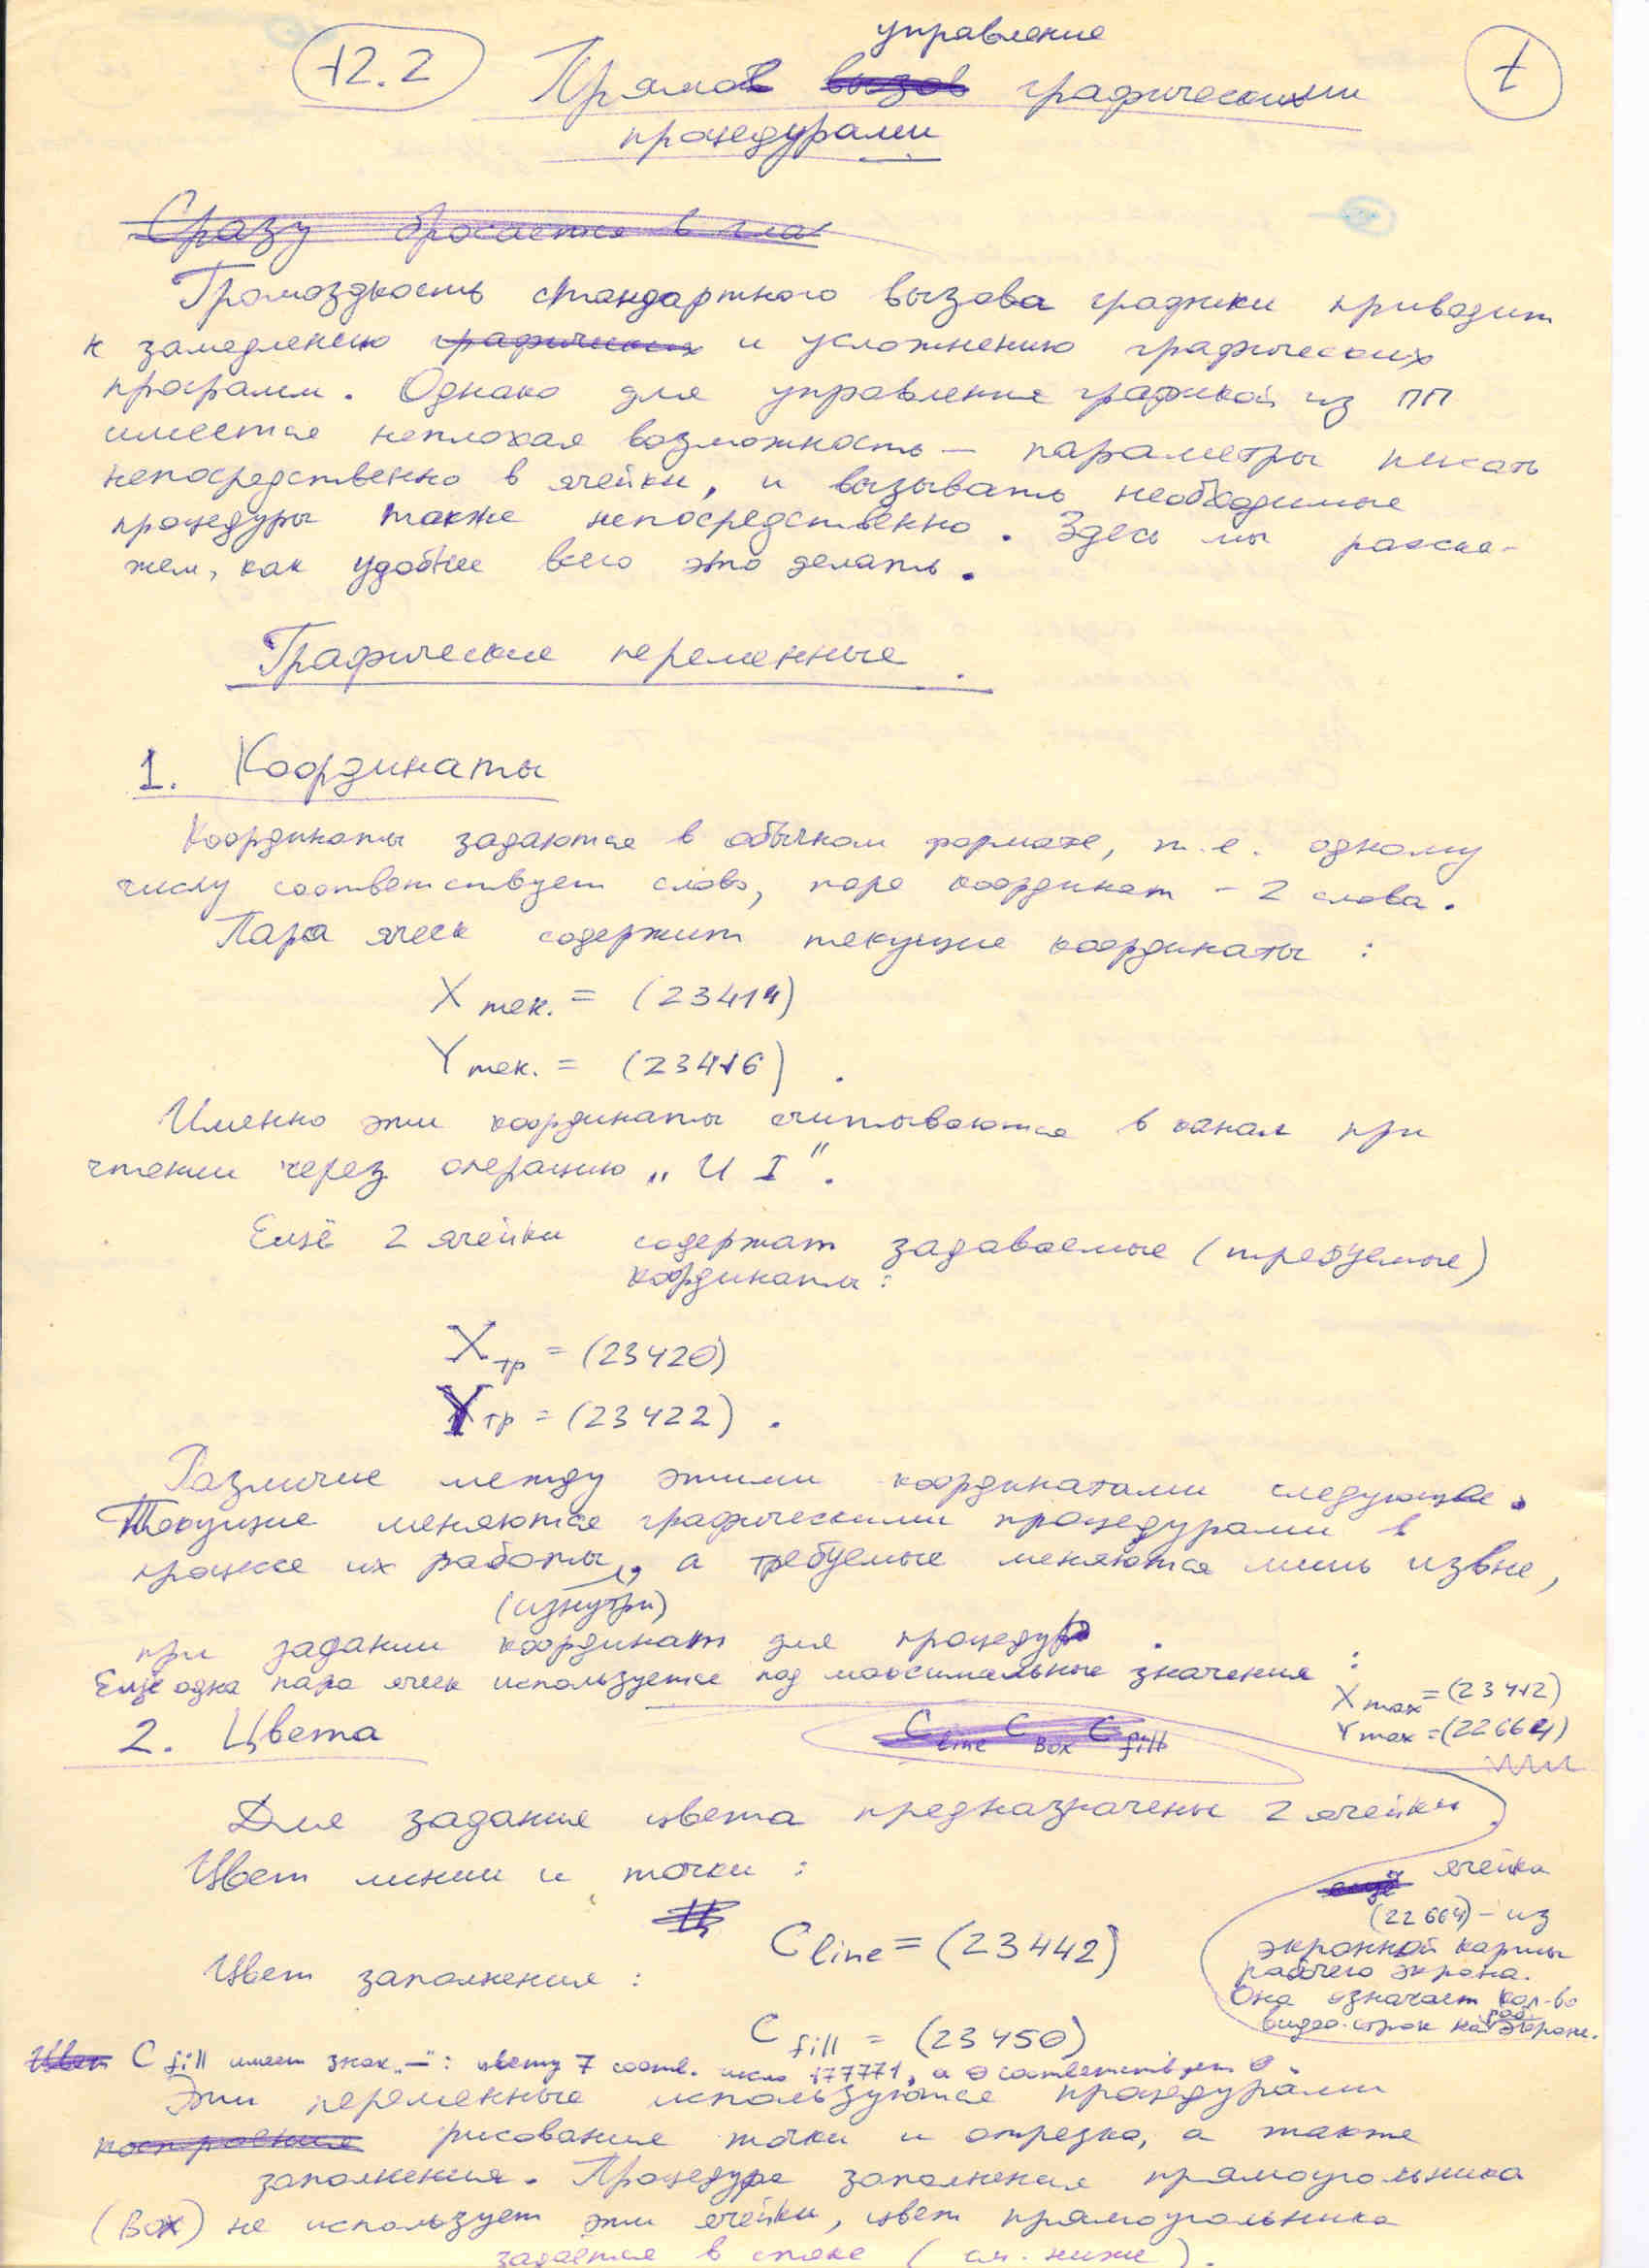 12.2
управление
Прямое вызов графическими
1
процедурами
Сразу бросается в глаз
Громоздкость стандартного вызова графики приводит
к замедлению графических и усложнению графических
программ. Однако для управления графикой из ПП
имеется неплохая возможность — параметры писать
непосредственно в ячейки, и вызывать необходимые
процедуры также непосредственно. Здесь мы расска-
жем, как удобнее всего это делать.
Графические переменные.
1. Координаты
Координаты задаются в обычном формате, т.е. одному
числу соответствует слово, паре координат - 2 слова.
Пара ячеек содержит текущие координаты :
X тек. = (23414)
Y тек. = (23416) .
Именно эти координаты считываются в канал при
чтении через операцию „И I".
Ещё 2 ячейки содержат задаваемые (требуемые)
координаты:
Xтр = (23420)
Yтр = (23422) .
Различие между этими координатами следующее.
Текущие меняются графическими процедурами в
процессе их работы, а требуемые меняются лишь извне,
(изнутри)
при задании координат для процедур .
Ещё одна пара ячеек используется под максимальные значения :
Xmax = (23412)
Ymax = (22664)
2. Цвета
Cline CBox Cfill
Для задания цвета предназначены 2 ячейки
Цвет линии и точки :
Cline = (23442)
ещё ячейка
(22664) - из
экранной карты
рабочего экрана.
Она означает кол-во
видео-строк на раб экране.
Цвет заполнения :
Cfill = (23450)
Цвет Cfill имеет знак „—": цвету 7 соотв. число 177771, а 0 соответствует 0.
Эти переменные используются процедурами
построения рисования точки и отрезка, а также
заполнения. Процедура заполнения прямоугольника
(BOX) не использует эти ячейки, цвет прямоугольника
задаётся в стеке (см. ниже).